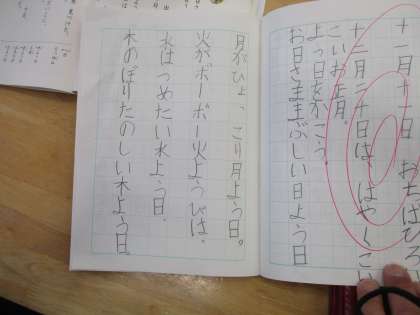 十一月 おちばひろ
十二月二十日は はやくこい
こいお正月。
よう日をかこう。
お日さままぶしい日よう日
月がひょっこり月よう日。
火がボーボー火ようびは、
水はつめたい水よう日。
木のぼりたのしい木よう日。